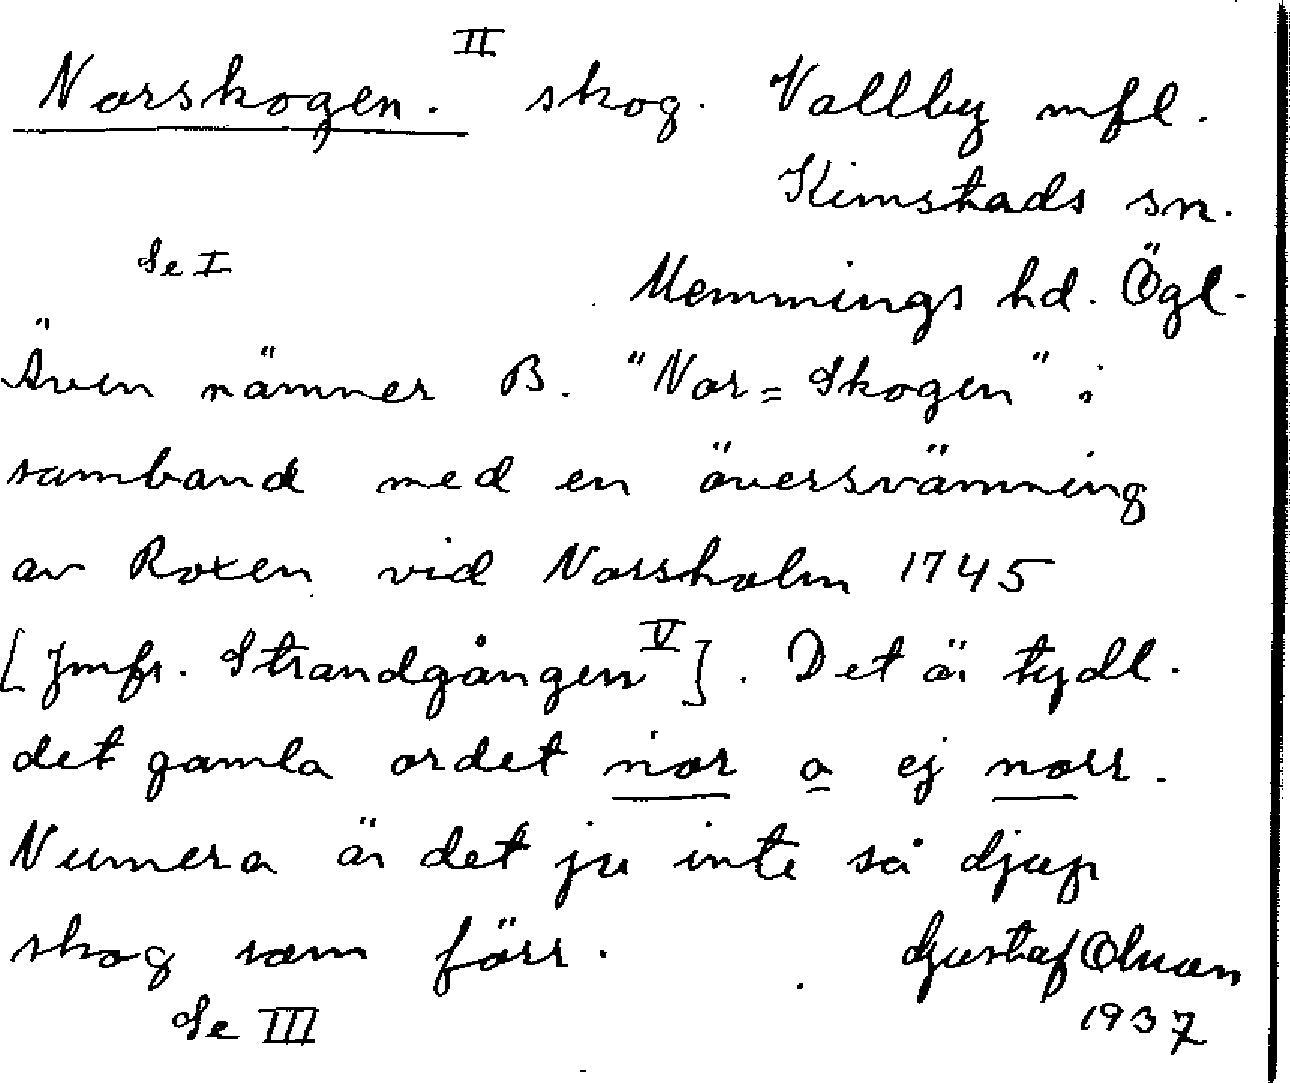 Norskogen. II skog. Vallby mfl.
Kimstads sn.
Se I Memmings hd. Ögl.
Även nämner B. "Nor=Skogen" i
samband med en översvämning
av Roxen vid Norsholm 1745
[Jmfr. Strandgången V]. Det är tydl.
det gamla ordet nor o ej norr.
Numera är det ju inte så djup
skog som förr. Gustaf Olson
Se III 1937